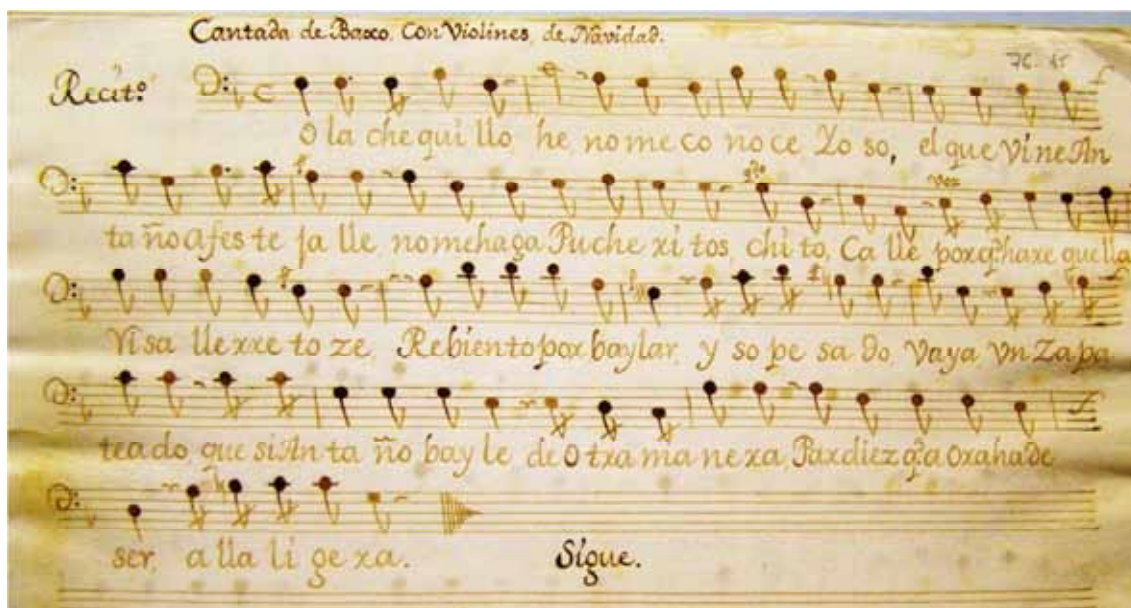 Cantada de Baxo, Con Violines, de Navidad.
76. 15
Recit.º
O la che qui llo he, no me co no ce Yo so, el que Vine An
voz
ta ño a fes te ja lle no me haga Puche xi tos, chi to, Ca lle porq.e haxe que lla
Vi sa lle xxe to ze, Rebiento por baylar, y so pe sa do, Vaya Vn Zapa
teado, que si An ta ño bay le de O txa ma ne xa, Paxdiez q.e a Oxa ha de
ser, a lla li ge xa. Sigue.